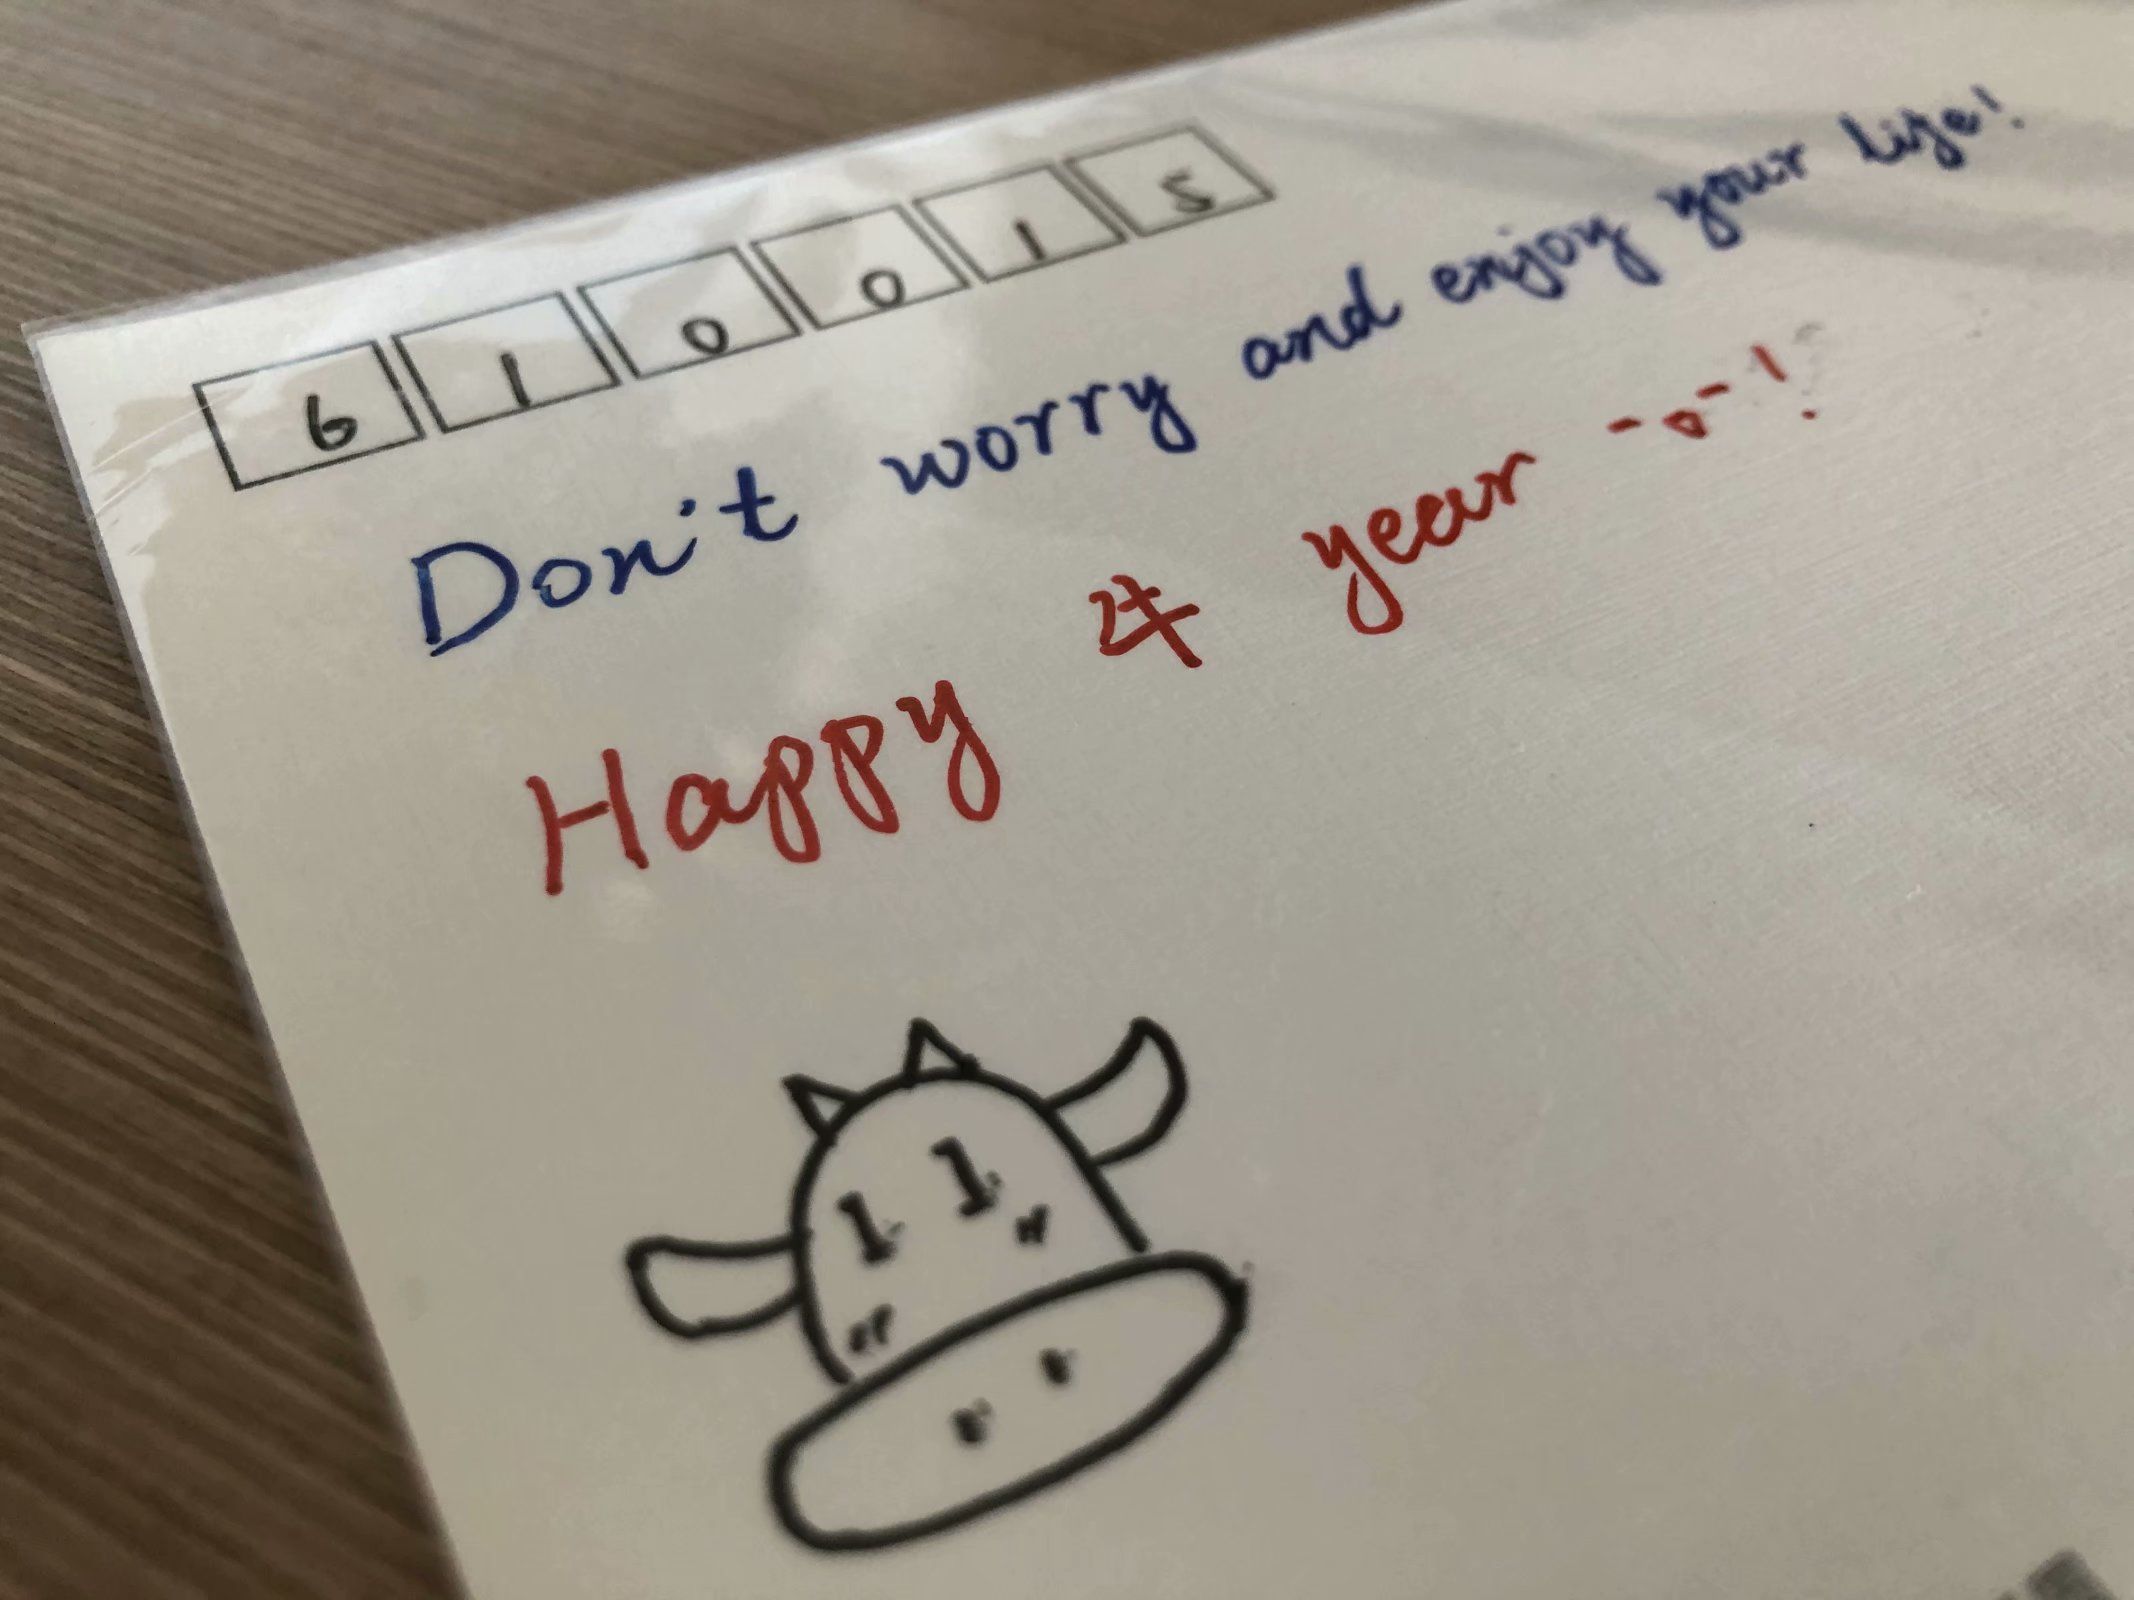 610015
Don't worry and enjoy your life!
Happy 牛 year -o-!